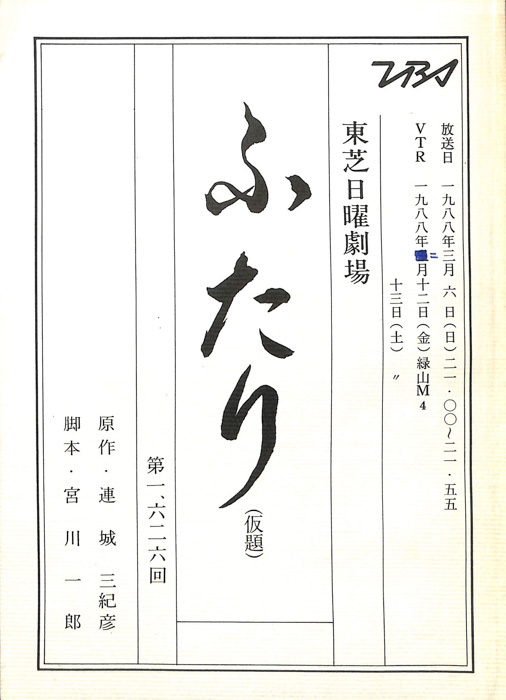 TBS
放送日 一九八八年三月 六 日（日）二一・〇〇〜二一・五五
VTR 一九八八年二月十二日（金）緑山M4
十三日（土） 〃
東芝日曜劇場
ふたり
（仮題）
第一、六二六回
原作・連城 三紀彦
脚本・宮川一郎